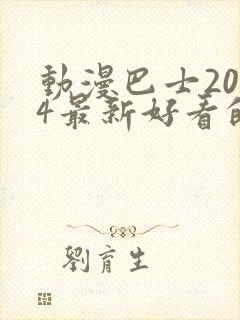 動漫巴士20
4最新好看的
劉育生